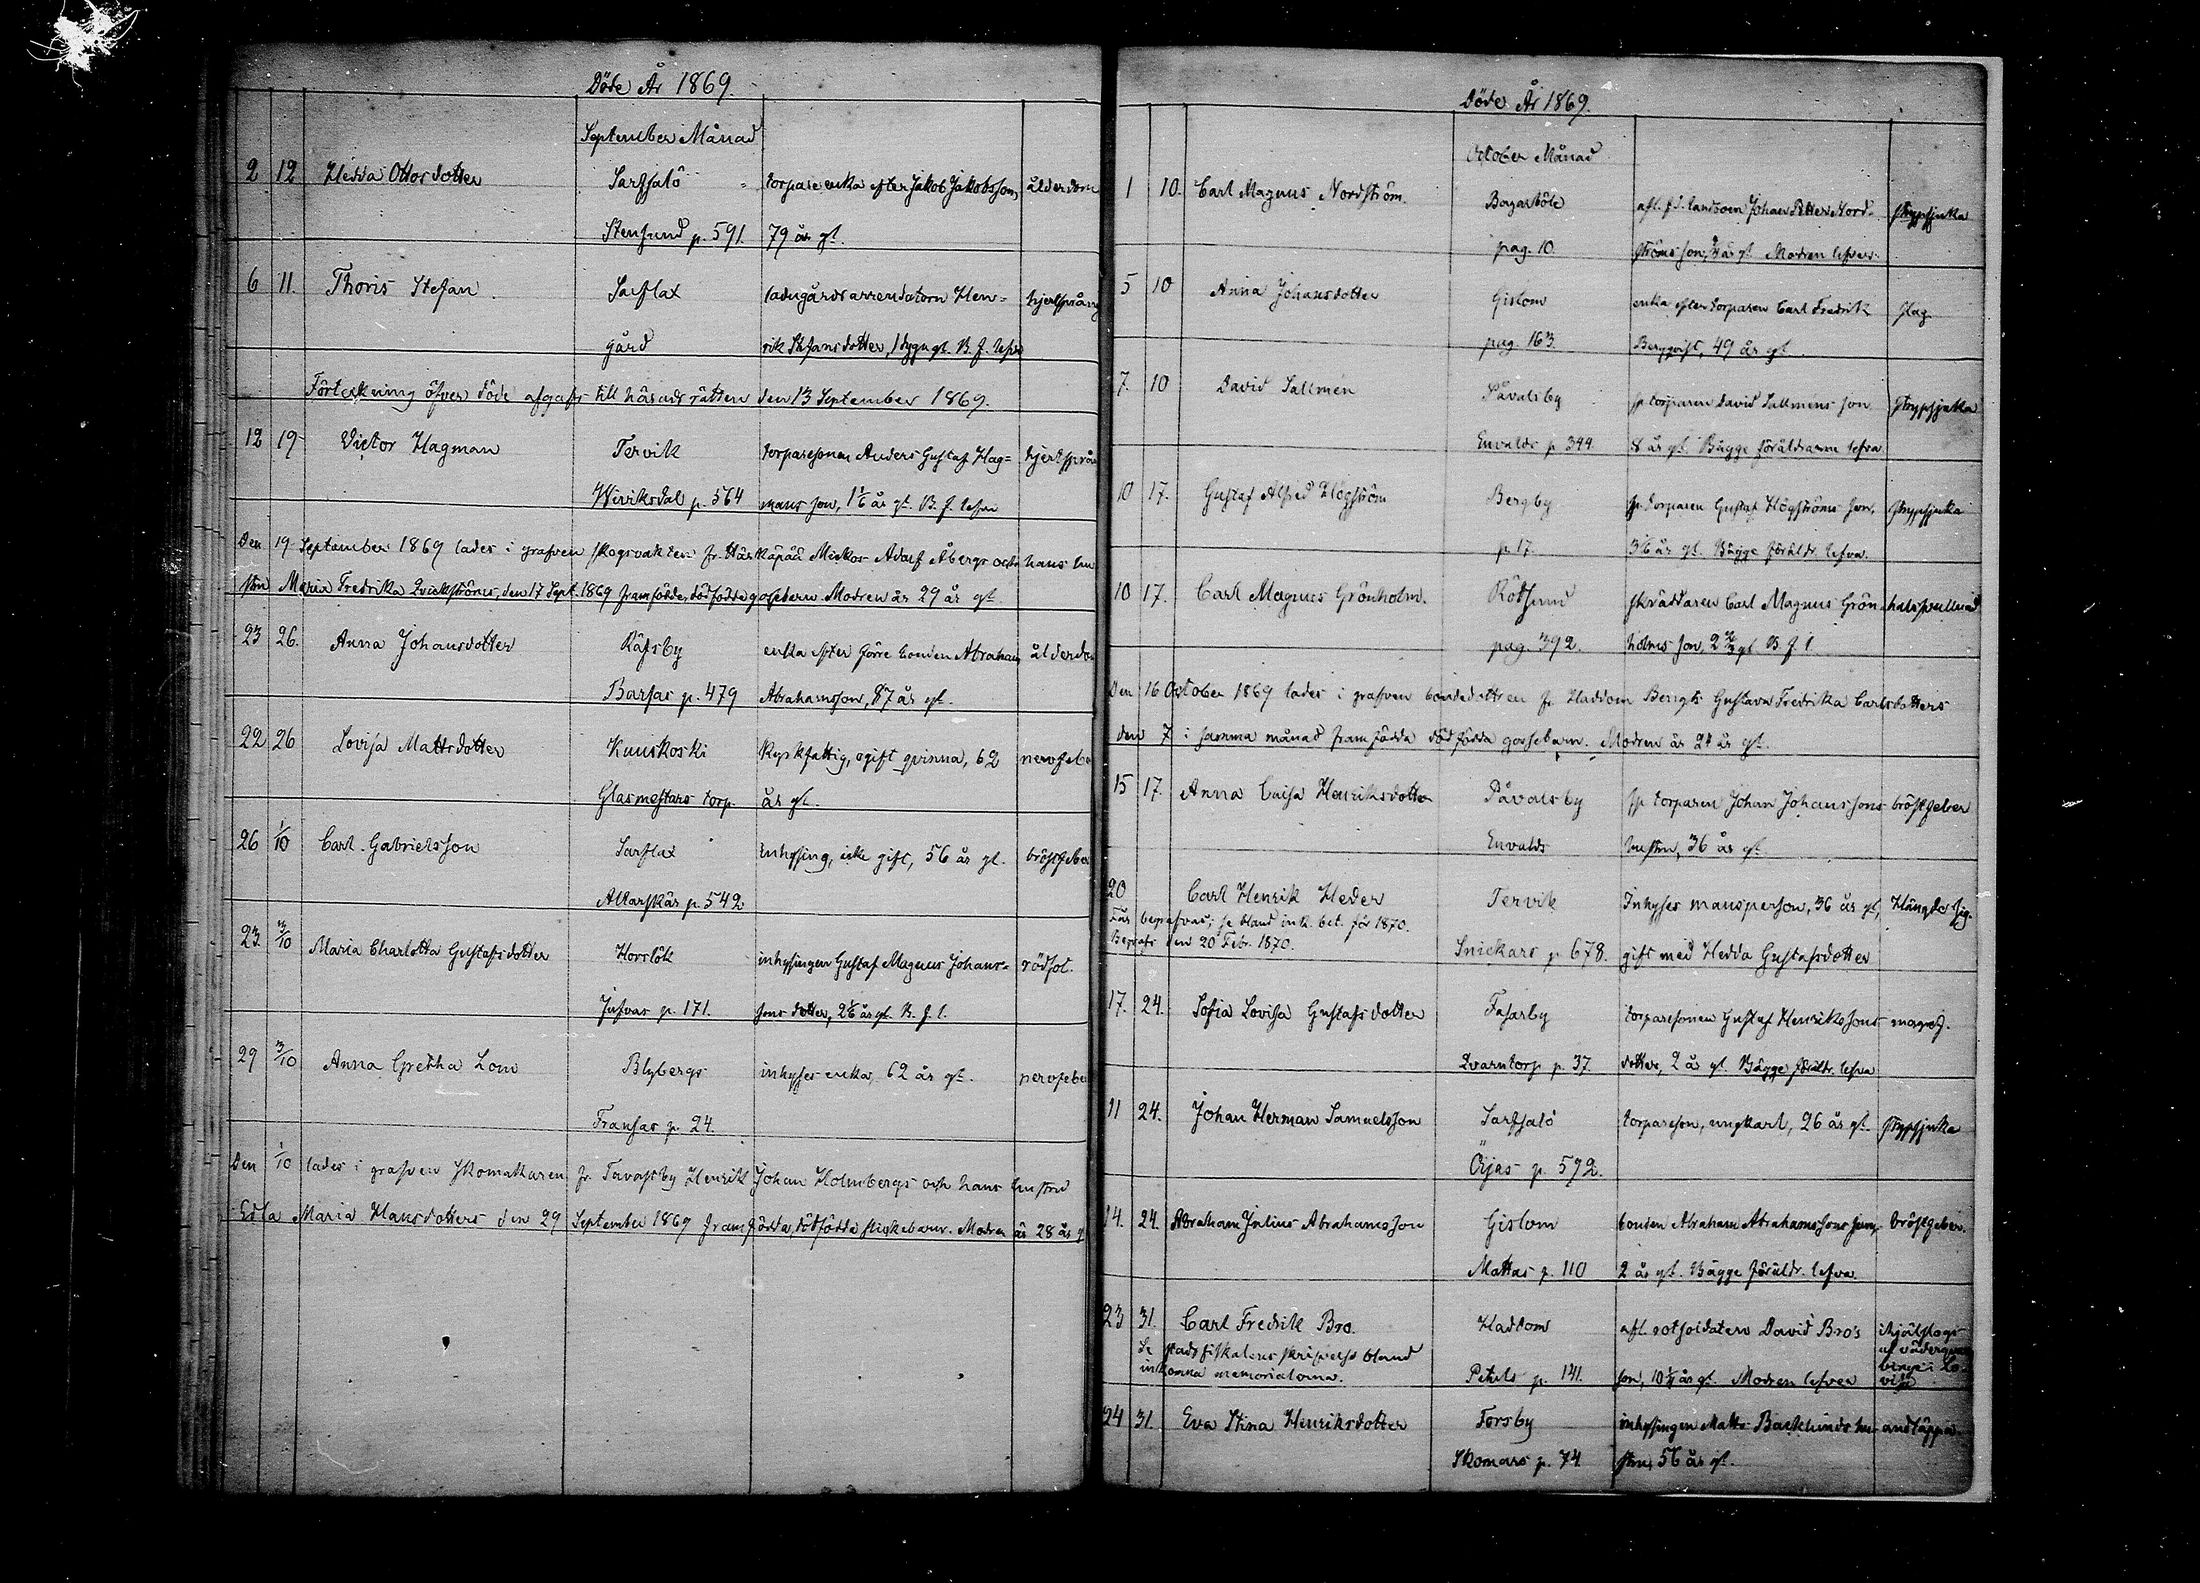 Döde År 1869.
September Månad
2 12 Hedda Ottosdotter Sarfsalö torpareenka efter Jakob Jakobsson, ålderdom
Stensund p. 591. 79 år gl.
6 11. Thoris Stefan. Sarflax ladugårdsarrendatorn Hen- hjertsprång
gård rik Stefansdotter, 1 dygn gl. B. f. lefva
Förteckning öfver döde afgafs till häradsrätten den 13 September 1869.
12 19 Victor Hagman Tervik torparesonen Anders Gustaf Hag- hjertsprån
Wiriksdal p. 564 mans son, 1 1/6 år gl. B. f. lefva
Den 19 September 1869 lades i grafven skogsvakten fr. Härkäpää Mickos Adolf Åbergs och hans hu
stru Maria Fredrika Qvickströms, den 17 Sept. 1869 framfödde, dödfödda gossebarn. Modren är 29 år gl.
23 26. Anna Johansdotter Räfsby enka efter förre bonden Abraham ålderdo
Barsas p. 479 Abrahamsson, 87 år gl.
22 26 Lovisa Mattsdotter Kuuskoski Kyrkfattig, ogift qvinna, 62 nervfeb
Glasmestars torp. år gl.
26 1/10 Carl Gabrielsson Sarflax Inhysing, icke gift, 56 år gl. bröstfeber
Allarskär p. 542
23 3/10 Maria Charlotta Gustafsdotter Horslök inhysingen Gustaf Magnus Johans- rödsot.
Jusvas p. 171. sons dotter, 2 1/6 år gl. B. f. l.
29 3/10 Anna Gretha Lom Blybergs inhyses enka, 62 år gl. nervfebe
Fransas p. 24.
Den 1/10 lades i grafven skomakaren fr. Tavastby Henrik Johan Holmbergs och hans hustru
Edla Maria Hansdotters den 29 September 1869 framfödda, dödfödda flickebarn. Modren är 28 år g
Döde År 1869.
October Månad
1 10. Carl Magnus Nordström. Bagarböle afl. f. d. landboen Johan Petter Nord- strypsjuka
pag. 10. ströms son, år gl. Modren lefver.
5 10 Anna Johansdotter Gislom enka efter torparen Carl Fredrik slag
pag. 163. Bergqvist, 49 år gl.
7. 10 David Sallmén Påvalsby sp. torparen David Sallméns son strypsjuka
Envalds p. 344. 8 år gl. Bägge föräldrarne lefva
10 17. Gustaf Alfred Högström Bergby sp. torparen Gustaf Högströms son, strypsjuka
p. 17. år gl. Bägge föräldr. lefva.
10 17. Carl Magnus Grönholm. Rödsund skräddaren Carl Magnus Grön- halssvullnad
pag. 392. holms son, 2 gl B. f. l.
Den 16 October 1869 lades i grafven bondedottren fr. Haddom Bengts Gustava Fredrika Carlsdotters
den 7 i samma månad framfödda dödfödda gossebarn. Modren är 24 år gl.
15 17. Anna Caisa Henriksdotter Påvalsby sp torparen Johan Johanssons bröstfeber
Envalds hustru, 36 år gl.
20 Carl Henrik Heder Tervik Inhyses mansperson, 36 år gl, Hängde sig.
Får begrafvas; se bland ink. bet. för 1870.
Begrafs den 20 Febr. 1870. Snickars p. 678. gift med Hedda Gustafsdotter
17. 24. Sofia Lovisa Gustafsdotter Fasarby torparesonen Gustaf Henrikssons magref.
Qvarntorp p. 37. dotter, 2 år gl. Bägge föräldr. lefva
11 24. Johan Herman Samuelsson Sarfsalö torpareson, ungkarl, 26 år gl. strypsjuka
Öijas p. 592.
14. 24. Abraham Julius Abrahamsson Gislom bonden Abraham Abrahamssons son, bröstfeber.
Mattas p. 110 2 år gl. Bägge föräldr. lefva.
23 31. Carl Fredrik Bro. Haddom afl. rotsoldaten David Bro's ihjälslags
Se stadsfiskalens skrifvelse bland af väderqvarn
inkomna memorialerna. Petas p. 141. son, 10 år gl. Modren lefver vinge i Lo-
visa
24 31. Eva Stina Henriksdotter Forsby inhysingen Matts Backlunds hu- andtäppa.
Skomars p. 74 stru, 56 år gl.